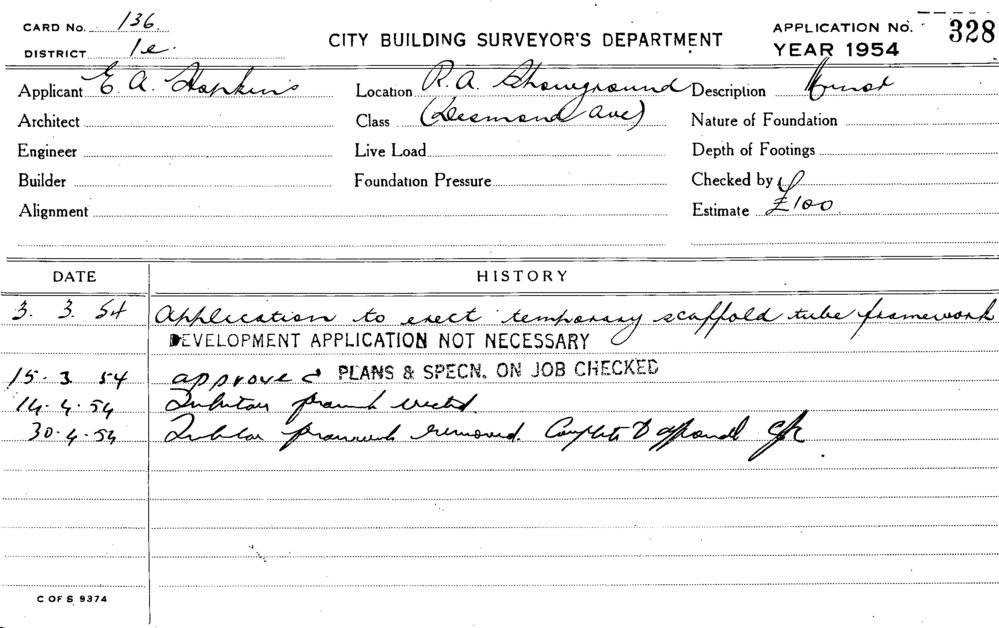 CARD No. 136
DISTRICT 1e.
CITY BUILDING SURVEYOR'S DEPARTMENT
APPLICATION No. 328
YEAR 1954
Applicant E. A. Hopkins
Location R. A. Showground
Description
Architect
Class (Desmond Ave)
Nature of Foundation
Engineer
Live Load
Depth of Footings
Builder
Foundation Pressure
Checked by
Alignment
Estimate £100
DATE
HISTORY
3. 3. 54 Application to erect temporary scaffold tube framework
DEVELOPMENT APPLICATION NOT NECESSARY
15. 3. 54 approved PLANS & SPECN. ON JOB CHECKED
14.4.54 erected.
30.4.54 removed.
C OF S 9374